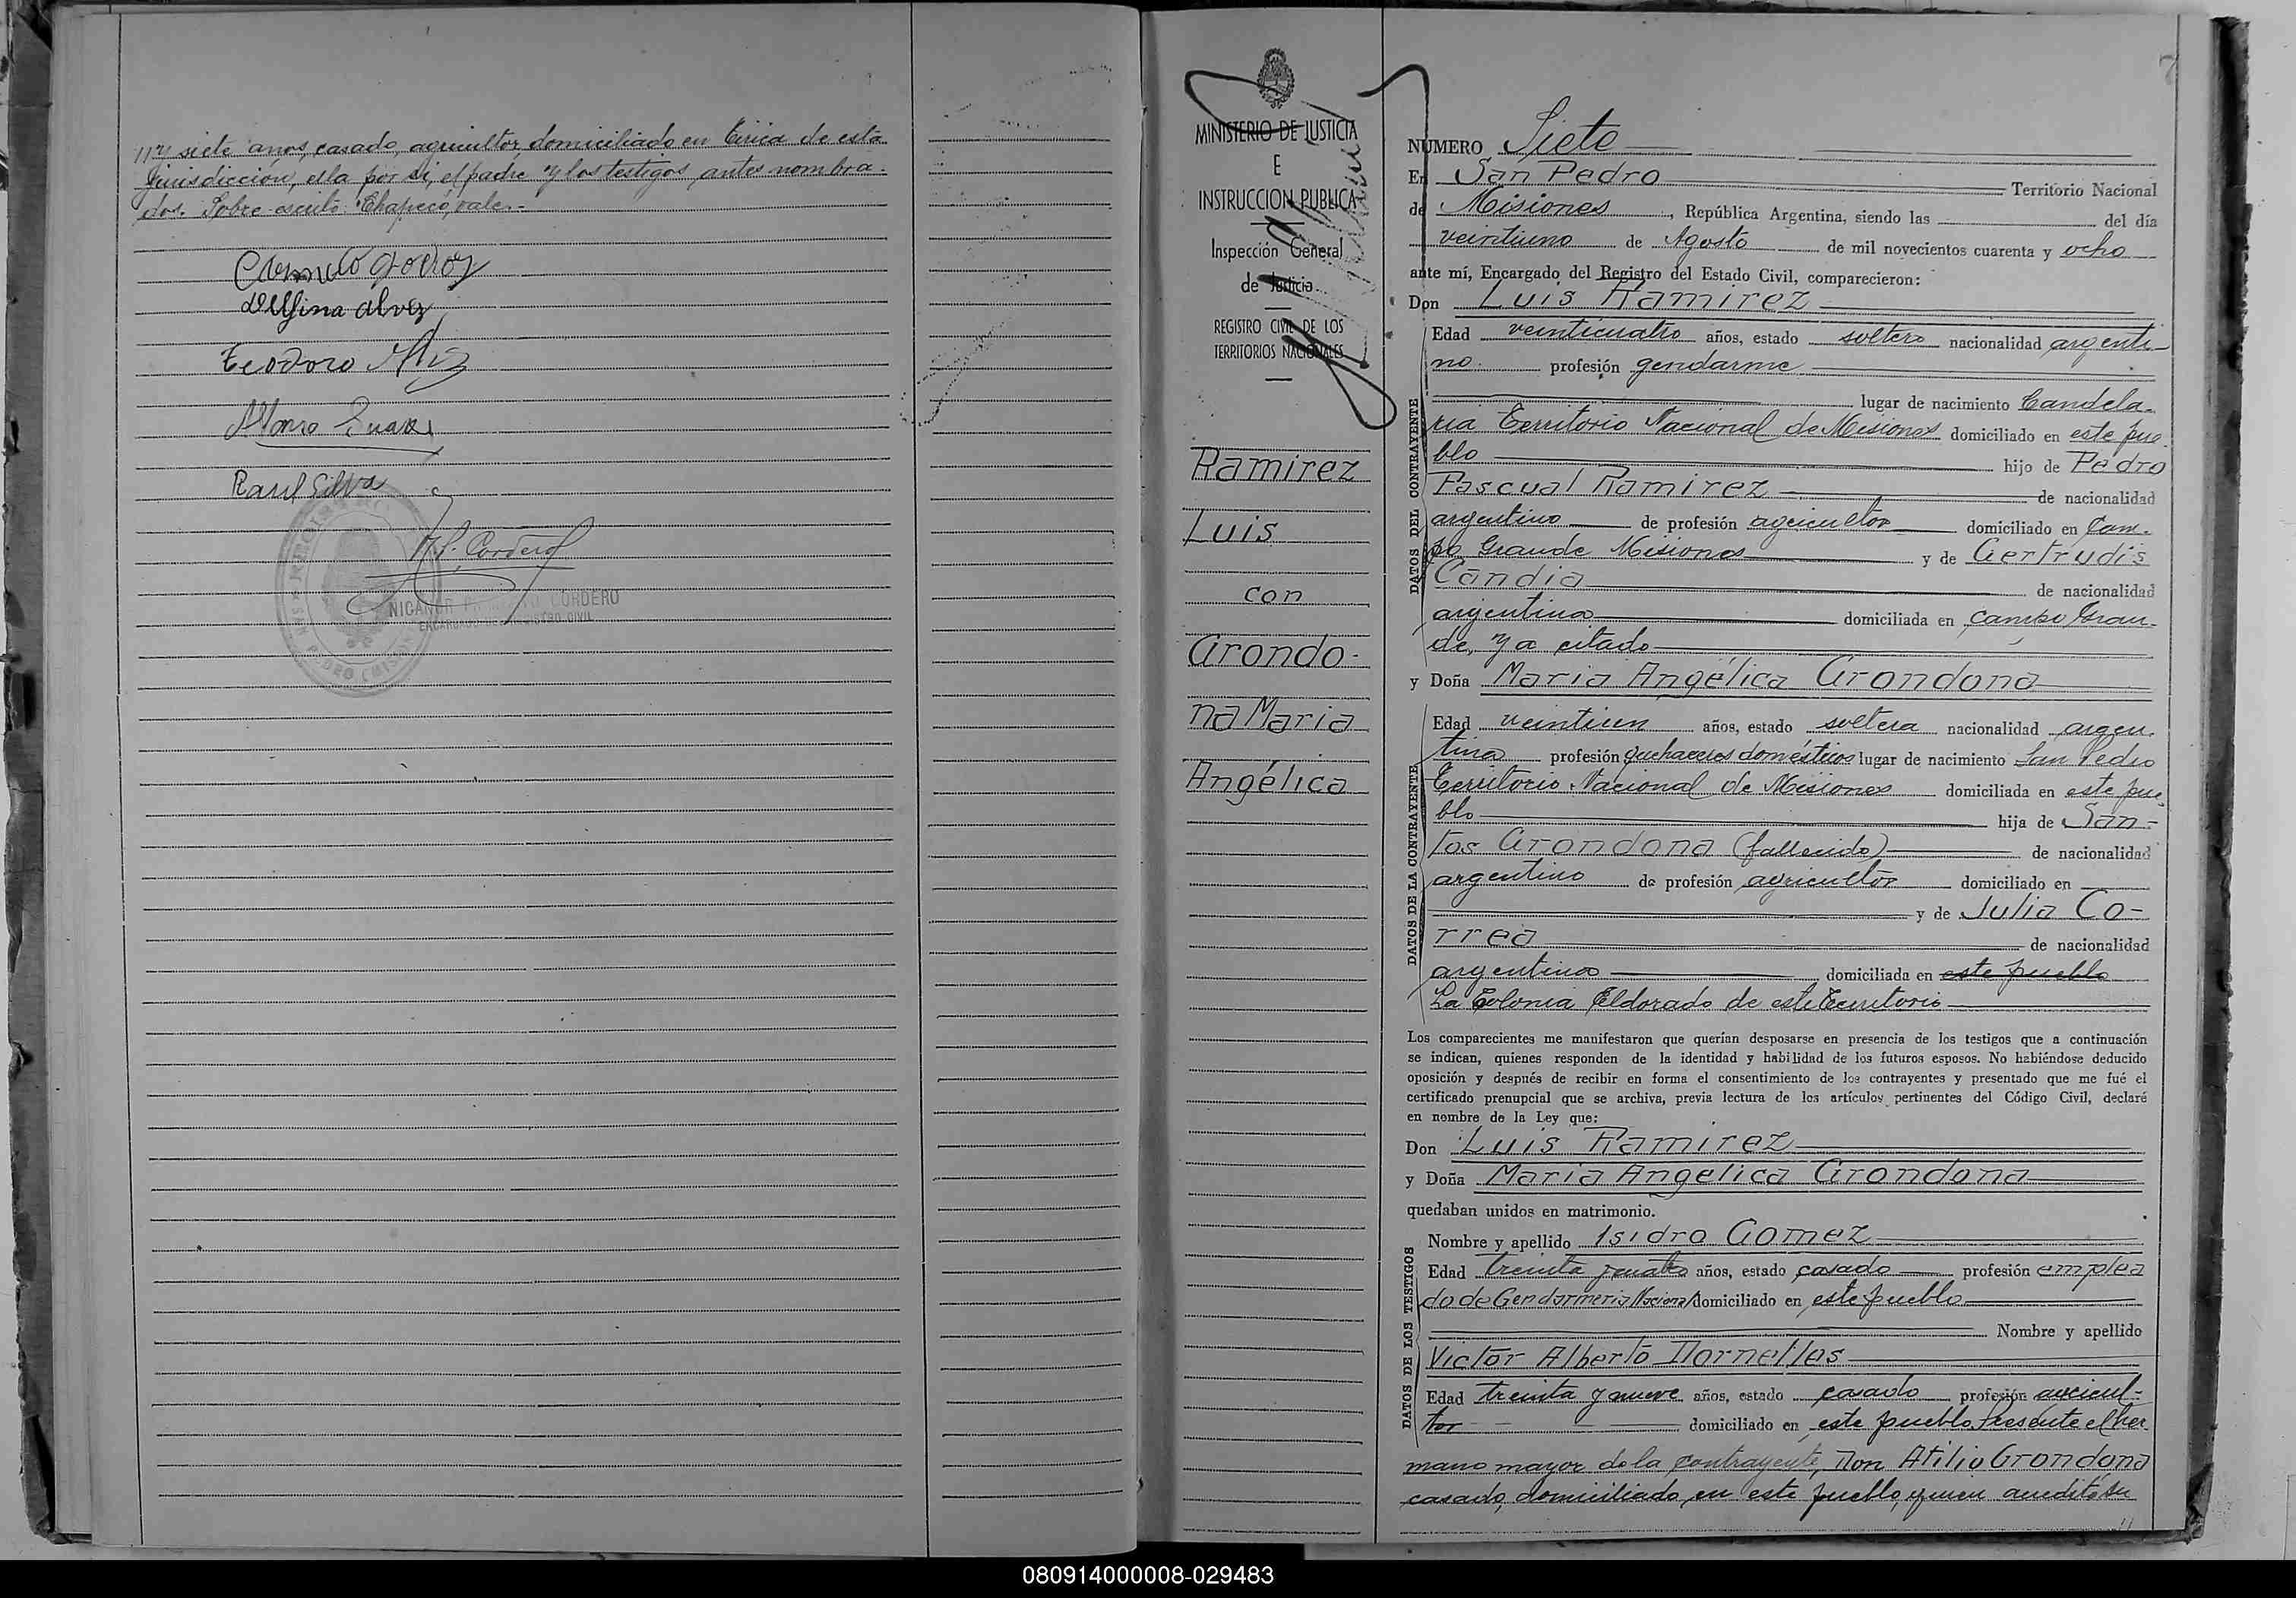 siete años, casado, agricultor, domiciliado en de esta
jurisdicción, ella por si, el padre y los testigos antes nombra-
dos. Sobre-escrito: Chapecó, vale.-
Godoy
Delfina Alvez
Teodoro
Suarez
Raul Silva
Cordero
CORDERO
ENCARGADO DEL REGISTRO CIVIL
MINISTERIO DE JUSTICIA
E
INSTRUCCION PUBLICA
Inspección General
de Justicia
REGISTRO CIVIL DE LOS
TERRITORIOS NACIONALES
Ramirez
Luis
con
Grondo-
na Maria
Angélica
7
NUMERO Siete
En San Pedro Territorio Nacional
de Misiones, República Argentina, siendo las del día
veintiuno de Agosto de mil novecientos cuarenta y ocho
ante mí, Encargado del Registro del Estado Civil, comparecieron:
Don Luis Ramirez
DATOS DEL CONTRAYENTE
Edad veinticuatro años, estado soltero nacionalidad argenti-
no. profesión gendarme
lugar de nacimiento Candela-
ria Territorio Nacional de Misiones domiciliado en este pue-
blo hijo de Pedro
Pascual Ramirez de nacionalidad
argentino de profesión agricultor domiciliado en Cam-
po Grande Misiones y de Gertrudis
Candia de nacionalidad
argentina domiciliada en Campo Gran-
de, ya citado
y Doña Maria Angélica Grondona
DATOS DE LA CONTRAYENTE
Edad veintiun años, estado soltera nacionalidad argen-
tina profesión quehaceres domésticos lugar de nacimiento San Pedro
Territorio Nacional de Misiones domiciliada en este pue-
blo hija de San-
tos Grondona (fallecido) de nacionalidad
argentino de profesión agricultor domiciliado en
y de Julia Co-
rrea de nacionalidad
argentina domiciliada en este pueblo
La Colonia Eldorado de este Territorio
Los comparecientes me manifestaron que querían desposarse en presencia de los testigos que a continuación
se indican, quienes responden de la identidad y habilidad de los futuros esposos. No habiéndose deducido
oposición y después de recibir en forma el consentimiento de los contrayentes y presentado que me fué el
certificado prenupcial que se archiva, previa lectura de los artículos pertinentes del Código Civil, declaré
en nombre de la Ley que:
Don Luis Ramirez
y Doña Maria Angelica Grondona
quedaban unidos en matrimonio.
DATOS DE LOS TESTIGOS
Nombre y apellido Isidro Gomez
Edad treinta y cuatro años, estado casado profesión emplea
do de Gendarmeria Nacional domiciliado en este pueblo
Nombre y apellido
Victor Alberto Dornelles
Edad treinta y nueve años, estado casado profesión agricul-
tor domiciliado en este pueblo. Presente el her-
mano mayor de la contrayente, Don Atilio Grondona
casado, domiciliado en este pueblo, quien acreditó su
080914000008-029483